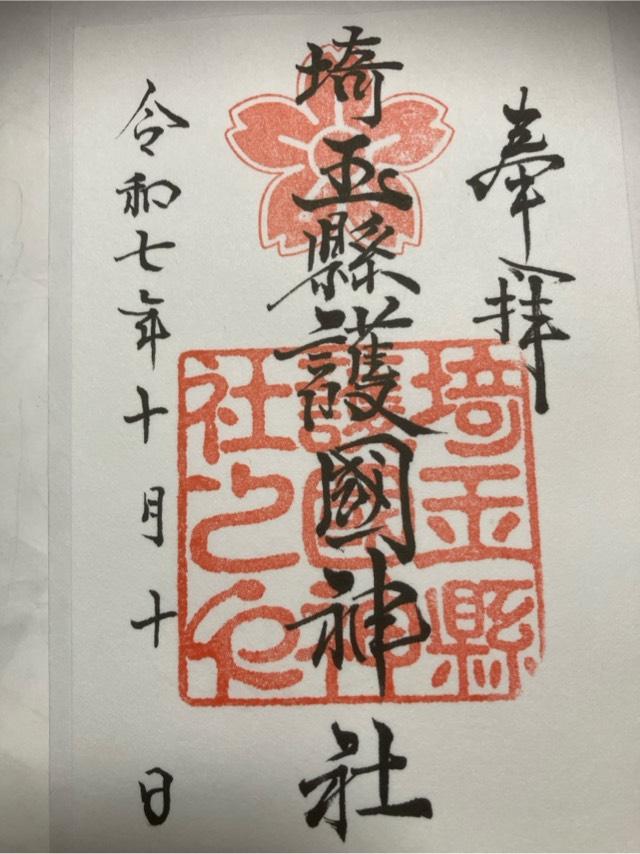 奉拝
埼玉縣護國神社
埼玉縣
護國神
社之印
令和七年十月十日